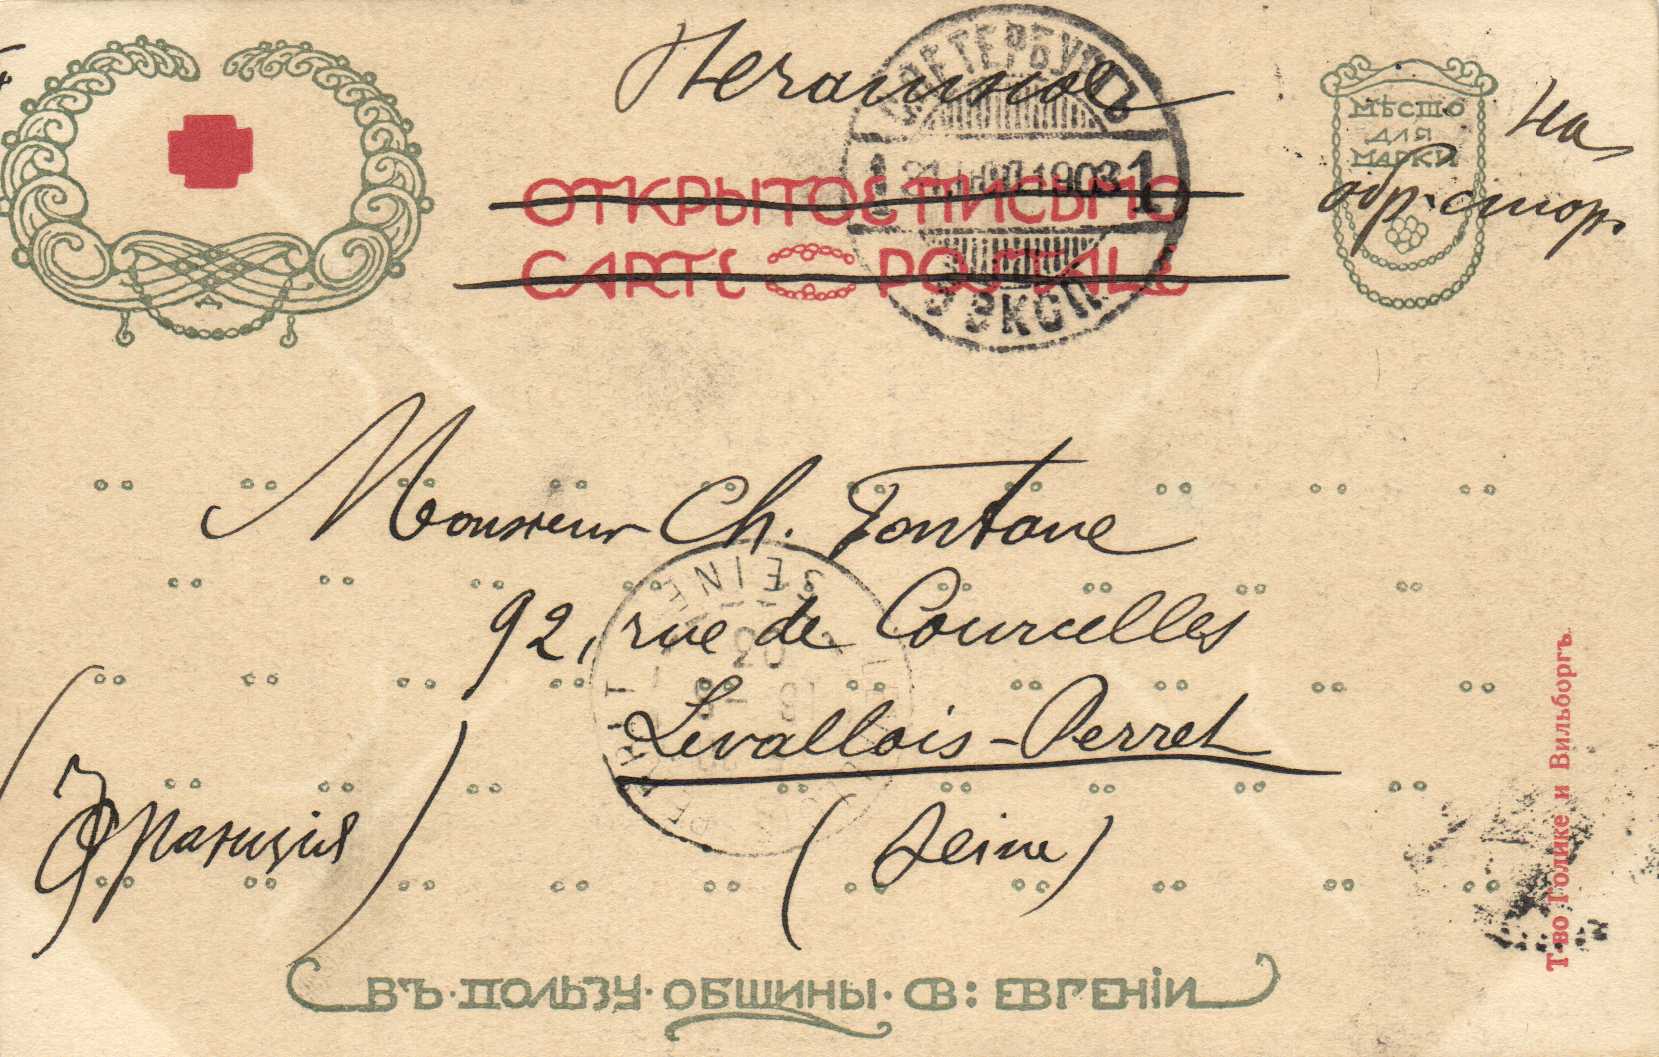 Печатное
С.ПЕТЕРБУРГЪ
1 21 1903 1
9 ЭКСП.
МѢСТО
ДЛЯ
МАРКИ
На
обр. стор.
ОТКРЫТОЕ ПИСЬМО
CARTE POSTALE
Monsieur Ch. Fontane
92, rue de Courcelles
Levallois-Perret
(Seine)
(Франція)
SEINE
03
ВЪ·ПОЛЬЗУ·ОБЩИНЫ·СВ: ЕВГЕНІИ
Т-во Голике и Вильборгъ